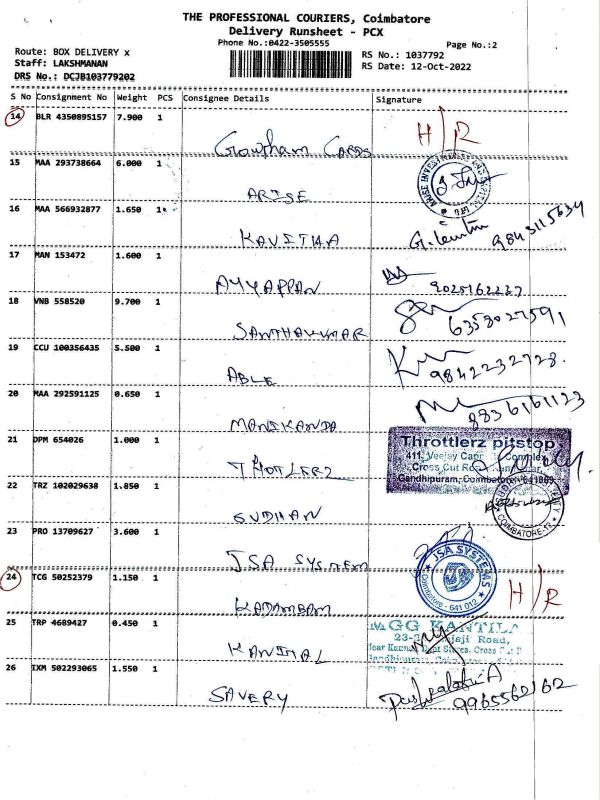 THE PROFESSIONAL COURIERS, Coimbatore
Delivery Runsheet - PCX
Phone No.:0422-3505555
Page No.:2
Route: BOX DELIVERY x
Staff: LAKSHMANAN
DRS No.: DCJB103779202
RS No.: 1037792
RS Date: 12-Oct-2022
S No Consignment No Weight PCS Consignee Details Signature
14 BLR 4350895157 7.900 1 Gowtham CARDS H/R
15 MAA 293738664 6.000 1 ARISE
16 MAA 566932877 1.650 1 KAVITHA 9843115634
17 MAN 153472 1.600 1 AYYAPPAN 9025162237
18 VNB 558520 9.700 1 SANTHAKUMAR 6358027591
19 CCU 100356435 5.500 1 ABLE 9842232728
20 MAA 292591125 0.650 1 MANIKANDA 8836161123
21 DPM 654026 1.000 1 THOTLERZ
Throttlerz pitstop
411, Veejay Complex
Cross Cut Road
Gandhipuram, Coimbatore - 641009
22 TRZ 102029638 1.850 1 SUDHAN
COIMBATORE-12
23 PRO 13709627 3.600 1 JSA SYSTEM
JSA SYSTEMS
Coimbatore - 641 012
24 TCG 50252379 1.150 1 KADAMBAM H/R
25 TRP 4689427 0.450 1 KANTHAL
GG KANTILA
Road,
Stores, Cross
26 IXM 502293065 1.550 1 SAVERY 9965560162